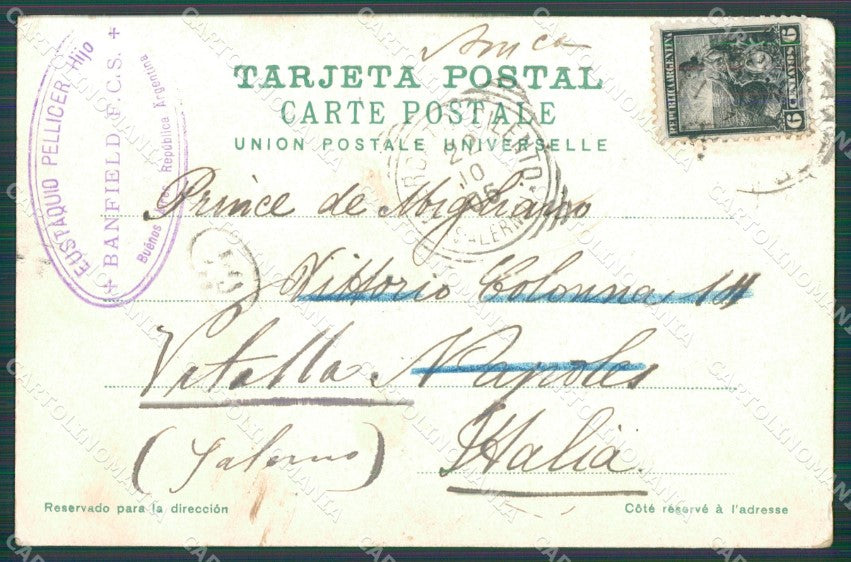 TARJETA POSTAL
CARTE POSTALE
UNION POSTALE UNIVERSELLE
EUSTAQUIO PELLICER Hijo
+ BANFIELD F.C.S. +
Buenos Aires República Argentina
REPUBLICA ARGENTINA
6 CENTAVOS 6
CILENTO
22
10
SALERNO
Prince de Migliano
Vittorio Colonna 111
Napoles
(Salerno)
Italia.
Reservado para la dirección
Côté réservé à l'adresse
CARTOLINOMANIA